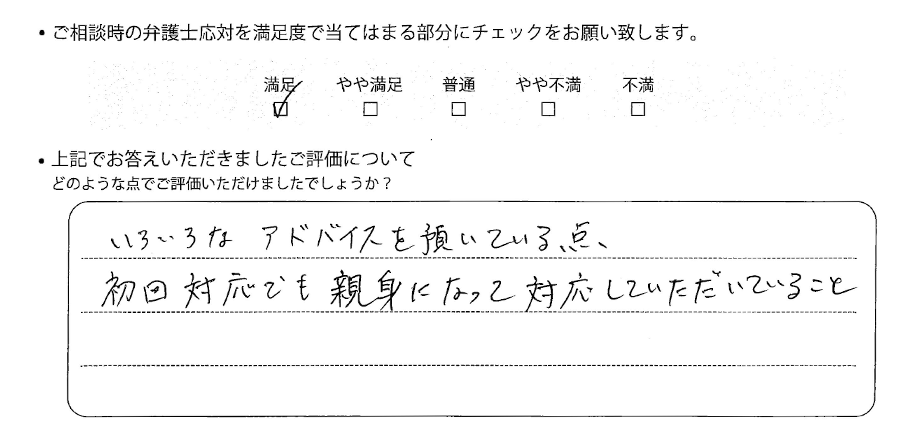 ・ご相談時の弁護士応対を満足度で当てはまる部分にチェックをお願い致します。
満足 やや満足 普通 やや不満 不満
☑ □ □ □ □
・上記でお答えいただきましたご評価について
どのような点でご評価いただけましたでしょうか？
いろいろな アドバイスを預いている点、
初回対応でも親身になって対応していただいていること